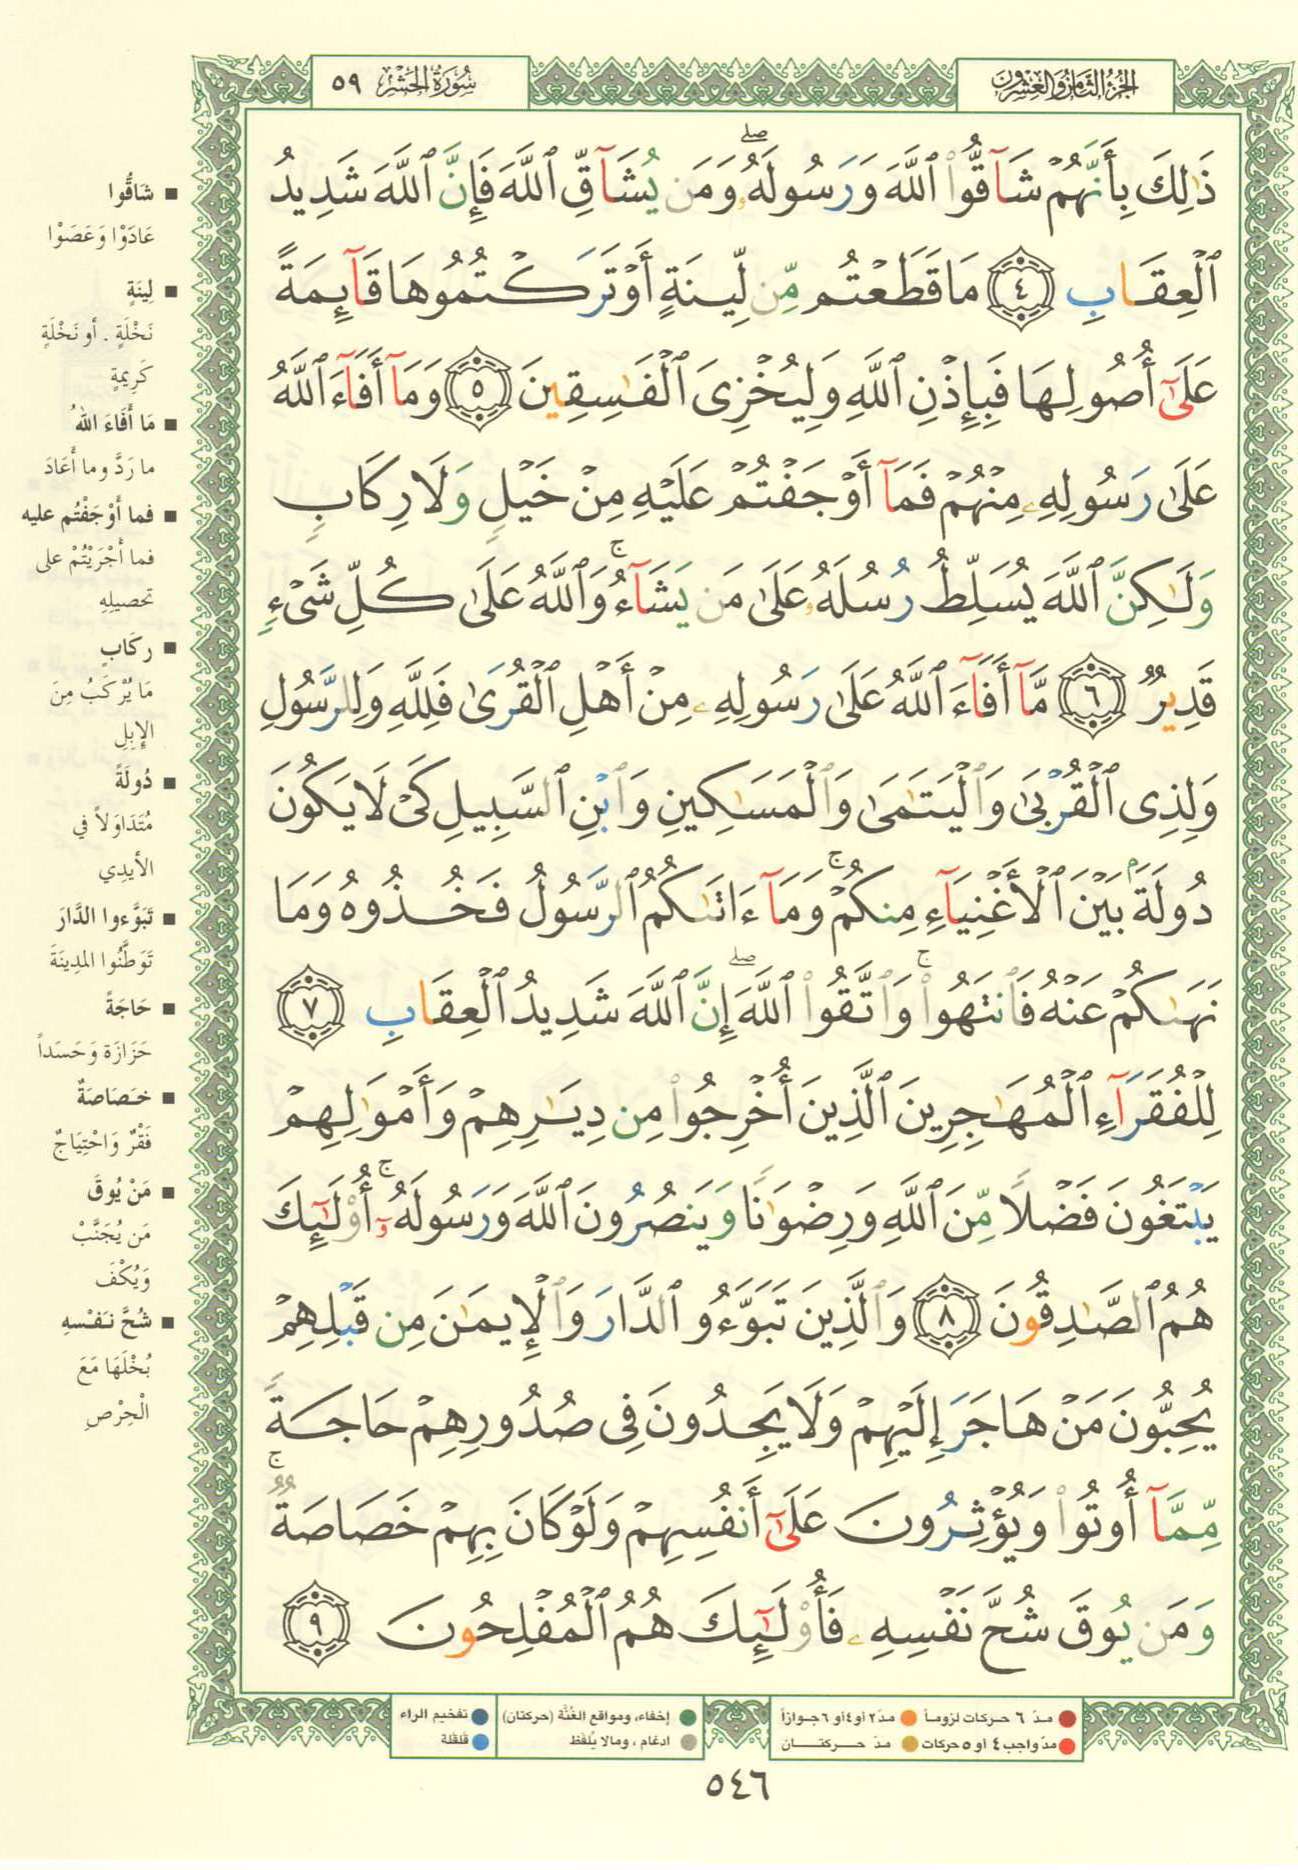 الجزء الثامن والعشرون
سُورَةُ الحَشْرِ ٥٩
ذَٰلِكَ بِأَنَّهُمْ شَآقُّوا۟ ٱللَّهَ وَرَسُولَهُۥ ۖ وَمَن يُشَآقِّ ٱللَّهَ فَإِنَّ ٱللَّهَ شَدِيدُ
ٱلْعِقَابِ ٤ مَا قَطَعْتُم مِّن لِّينَةٍ أَوْ تَرَكْتُمُوهَا قَآئِمَةً
عَلَىٰٓ أُصُولِهَا فَبِإِذْنِ ٱللَّهِ وَلِيُخْزِىَ ٱلْفَٰسِقِينَ ٥ وَمَآ أَفَآءَ ٱللَّهُ
عَلَىٰ رَسُولِهِۦ مِنْهُمْ فَمَآ أَوْجَفْتُمْ عَلَيْهِ مِنْ خَيْلٍ وَلَا رِكَابٍ
وَلَٰكِنَّ ٱللَّهَ يُسَلِّطُ رُسُلَهُۥ عَلَىٰ مَن يَشَآءُ ۚ وَٱللَّهُ عَلَىٰ كُلِّ شَىْءٍ
قَدِيرٌ ٦ مَّآ أَفَآءَ ٱللَّهُ عَلَىٰ رَسُولِهِۦ مِنْ أَهْلِ ٱلْقُرَىٰ فَلِلَّهِ وَلِلرَّسُولِ
وَلِذِى ٱلْقُرْبَىٰ وَٱلْيَتَٰمَىٰ وَٱلْمَسَٰكِينِ وَٱبْنِ ٱلسَّبِيلِ كَىْ لَا يَكُونَ
دُولَةًۢ بَيْنَ ٱلْأَغْنِيَآءِ مِنكُمْ ۚ وَمَآ ءَاتَىٰكُمُ ٱلرَّسُولُ فَخُذُوهُ وَمَا
نَهَىٰكُمْ عَنْهُ فَٱنتَهُوا۟ ۚ وَٱتَّقُوا۟ ٱللَّهَ ۖ إِنَّ ٱللَّهَ شَدِيدُ ٱلْعِقَابِ ٧
لِلْفُقَرَآءِ ٱلْمُهَٰجِرِينَ ٱلَّذِينَ أُخْرِجُوا۟ مِن دِيَٰرِهِمْ وَأَمْوَٰلِهِمْ
يَبْتَغُونَ فَضْلًا مِّنَ ٱللَّهِ وَرِضْوَٰنًا وَيَنصُرُونَ ٱللَّهَ وَرَسُولَهُۥٓ ۚ أُو۟لَٰٓئِكَ
هُمُ ٱلصَّٰدِقُونَ ٨ وَٱلَّذِينَ تَبَوَّءُو ٱلدَّارَ وَٱلْإِيمَٰنَ مِن قَبْلِهِمْ
يُحِبُّونَ مَنْ هَاجَرَ إِلَيْهِمْ وَلَا يَجِدُونَ فِى صُدُورِهِمْ حَاجَةً
مِّمَّآ أُوتُوا۟ وَيُؤْثِرُونَ عَلَىٰٓ أَنفُسِهِمْ وَلَوْ كَانَ بِهِمْ خَصَاصَةٌ ۚ
وَمَن يُوقَ شُحَّ نَفْسِهِۦ فَأُو۟لَٰٓئِكَ هُمُ ٱلْمُفْلِحُونَ ٩
■ شَاقُّوا
عَادَوْا وَعَصَوْا
■ لِينَةٍ
نَخْلَةٍ . أو نَخْلَةٍ
كَرِيمَةٍ
■ مَا أَفَاءَ اللهُ
ما رَدَّ وما أَعَادَ
■ فما أَوْجَفْتُم عليه
فما أَجْرَيْتُمْ على
تحصيلِهِ
■ رِكَابٍ
مَا يُرْكَبُ مِنَ
الإِبِلِ
■ دُولَةً
مُتَدَاوَلاً في
الأيدِي
■ تَبَوَّءوا الدَّارَ
تَوَطَّنُوا المدِينَةَ
■ حَاجَةً
حَزَازَة وَحَسَداً
■ خَصَاصَةٌ
فَقْرٌ وَاحْتِيَاجٌ
■ مَنْ يُوقَ
مَن يُجَنَّبْ
وَيُكْفَ
■ شُحَّ نَفْسِهِ
بُخْلَهَا مَعَ
الْحِرْصِ
مدّ ٦ حركات لزوماً
مدّ ٢ أو ٤ أو ٦ جوازاً
مدّ واجب ٤ أو ٥ حركات
مدّ حركتان
إخفاء، ومواقع الغُنَّة (حركتان)
ادغام ، ومالا يُلفَظ
تفخيم الراء
قلقلة
٥٤٦